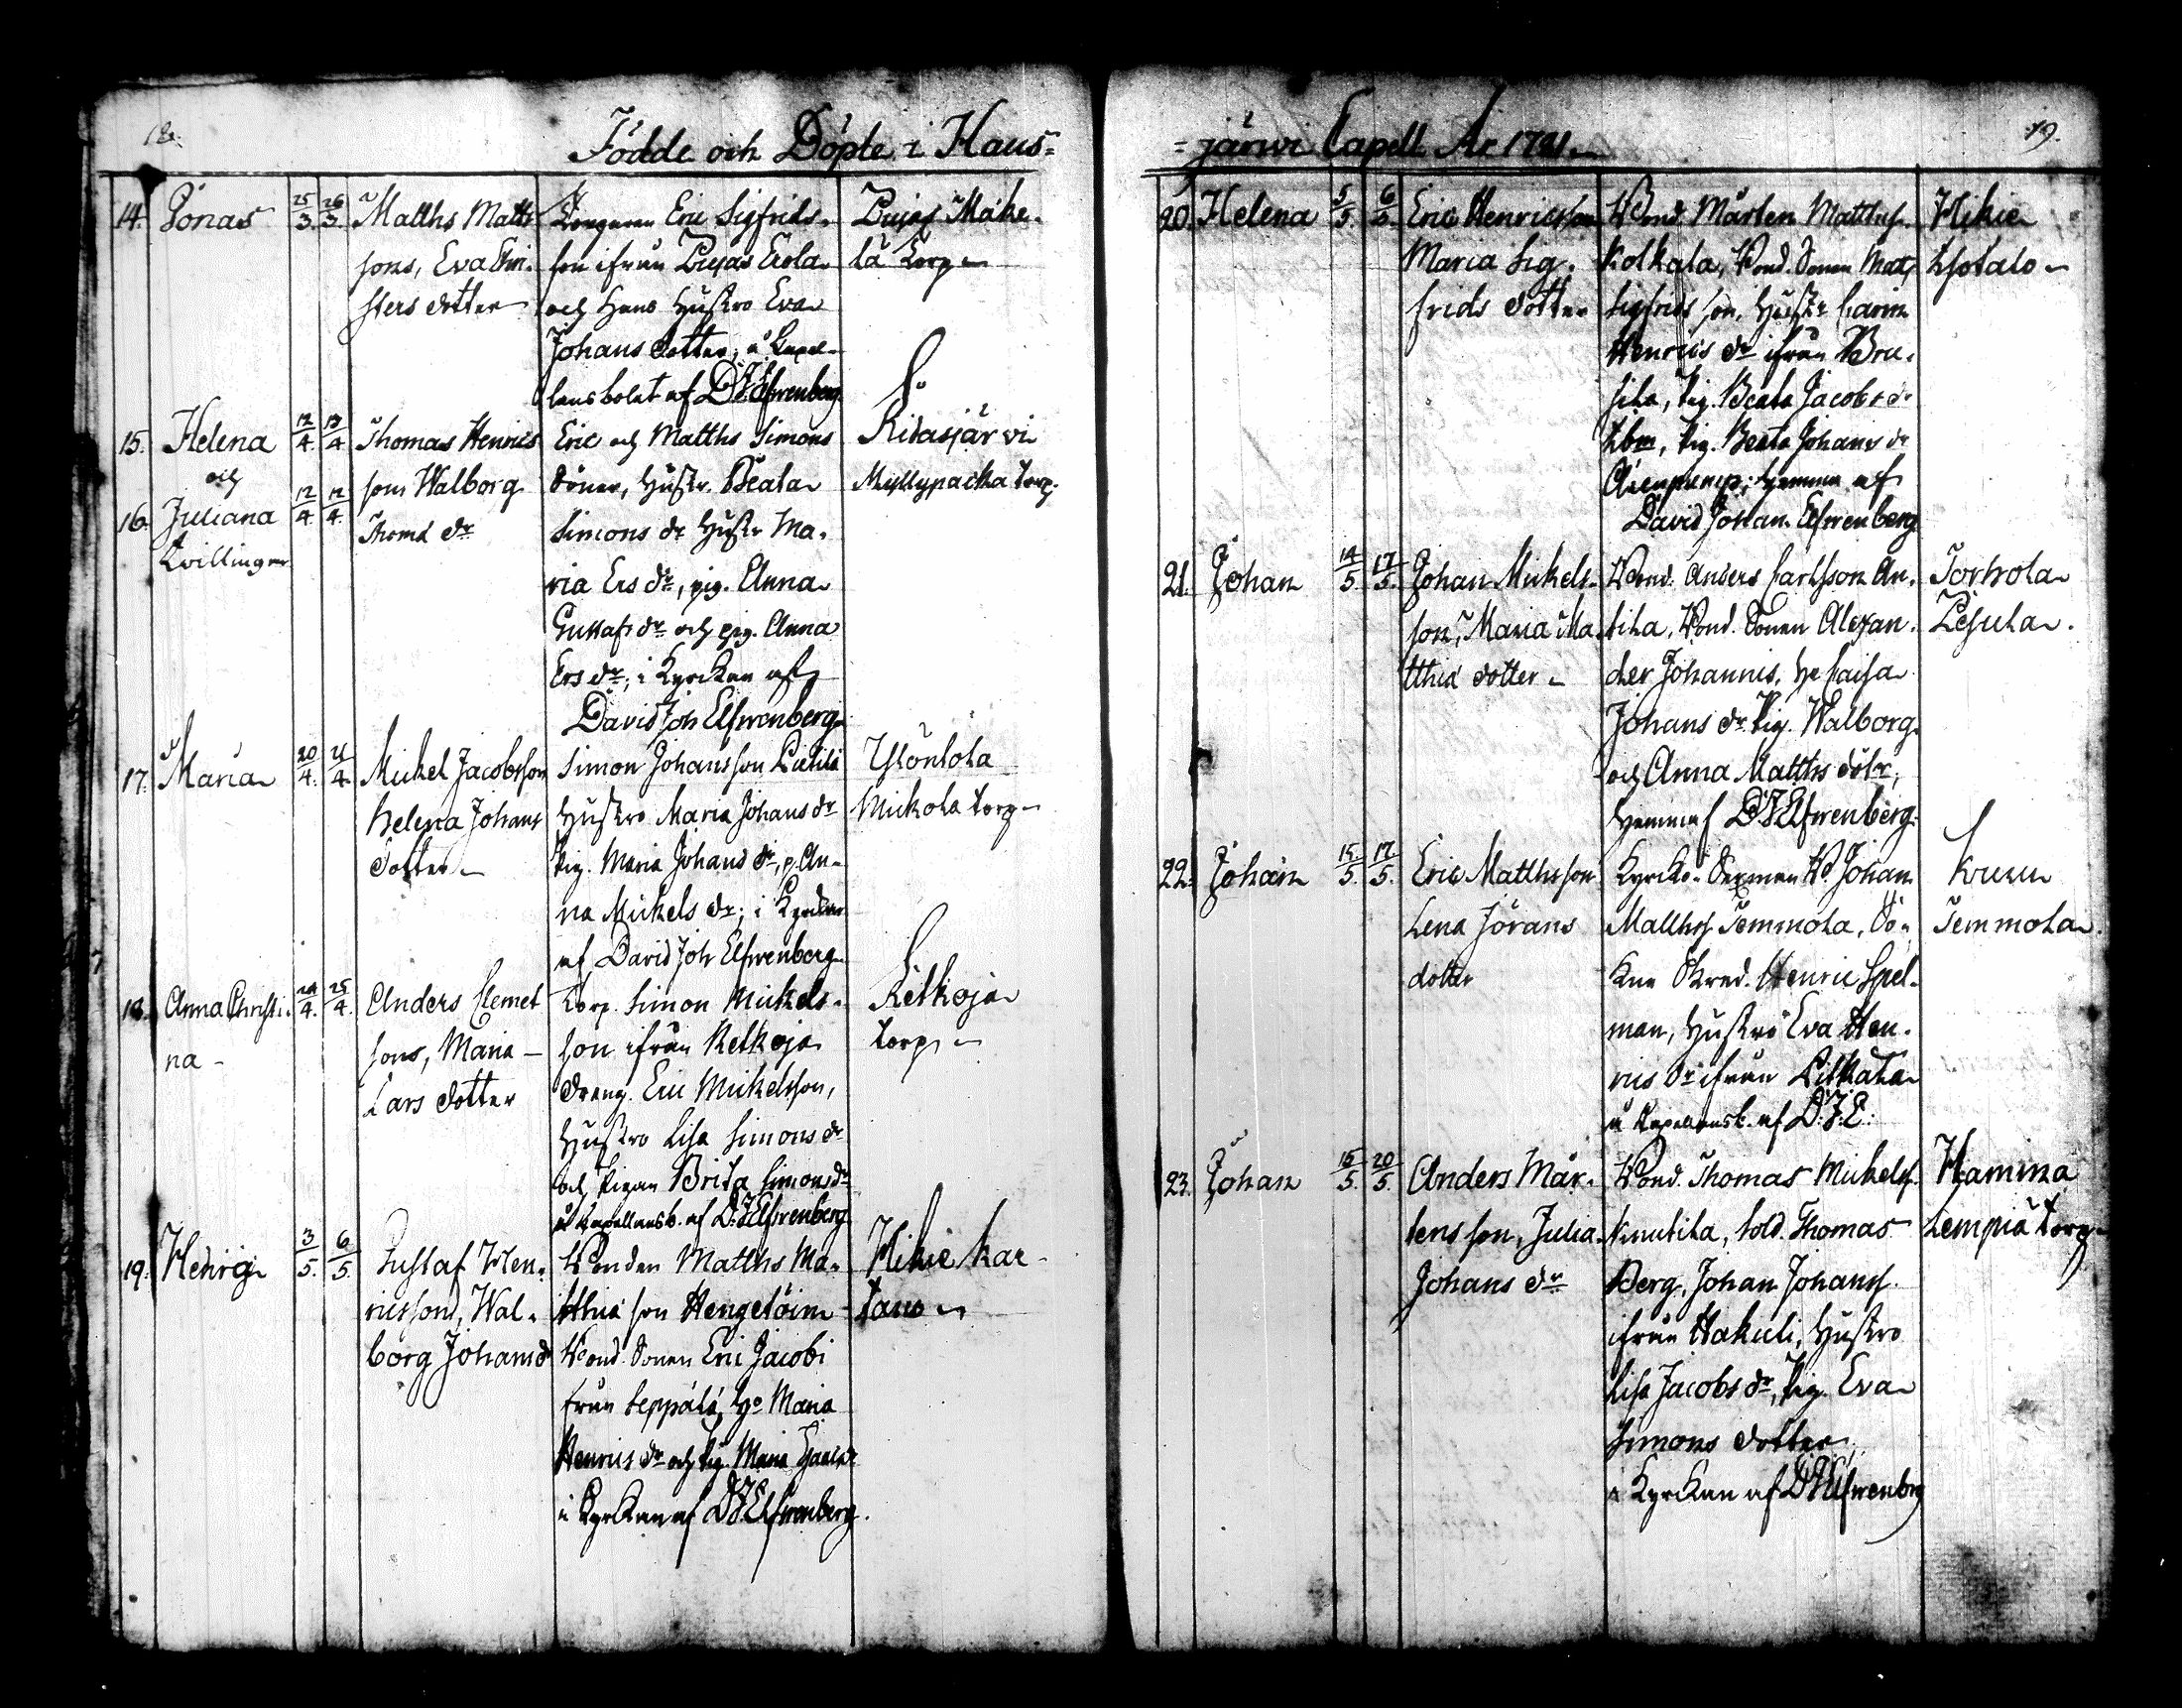 18.
Födde och Döpte i Haus=
14. Jonas 25/3. 26/3. Matths Matts
sons, Eva Chri-
sters dotter
Eric Sigfrids-
son ifrån
och Hans Hustro Eva
Johans dotter, i Capel-
lansbolet af D J Elfwenberg
Pujas Mahe-
lä Torp
15. Helena 12/4. 13/4 Thomas Henrics
och
16. Juliana 12/4. 12/4. sons Walborg
Tvillingar
Thomæ dr
Eric och Matths Simons
Söner, Hustr. Beata
Simons dr Hustr Ma-
ria Ers dr, pig. Anna
Gustafs dr och pig. Anna
Ers dr; i Kyrckan af
David Joh Elfwenberg
Ridasjärvi
Myllypacka torp.
17. Maria 20/4. 21/4. Mickel Jacobsson
Helena Johans
dotter
Simon Johansson
Hustro Maria Johans dr
Pig. Maria Johans dr, p. An-
na Mickels dr; i Kyrckan
af David Joh Elfwenberg
Mickola torp
18. Anna Christi- 24/4. 25/4. Anders Clemet
na
sons, Maria
Lars dotter
Torp. Simon Mickels-
son ifrån Retkoja
dreng. Eric Mickelsson,
Hustro Lisa Simons dr
och Pigan Brita Simons dr
i Capellansb. af D. J Elfwenberg
Retkoja
torp
19. Hedvig 3/5. 6/5. Gustaf Hen-
ricssons, Wal-
borg Johans dr
Bonden Matths Ma-
tthiæ son Hengelöim
Bond. Sonen Eric Jacobi
från Seppälä, H:o Maria
Henrics dr och Pig. Maria
i Kyrckan af D J. Elfwenberg.
Hikie Kar-
tano
=järwi Capell År 1791.
19.
20. Helena 5/5. 6/5. Eric Henricsson
Maria Sig-
frids dotter
Bond. Mårten Matths.
Kolkala, Bond. Sonen Matts
Sigfrids son, Hustr Carin
Henrics dr ifrån
Pig. Beata Jacobs dr
Pig. Beata Johans dr
hemma af
David Johan Elfwenberg
Hikie
Isotalo
21. Johan 14/5. 17/5. Johan Mickels-
son, Maria Ma-
tthiæ dotter
Bond. Anders Carlsson An-
tila, Bond. Sonen Alexan-
der Johannis, H:o Caisa
Johans dr Pig. Walborg
och Anna Matths döttr,
Hemma af D J Elfwenberg.
Torhola
22. Johan 15/5. 17/5. Eric Matthsson
Lena Jörans
dotter
Kyrcko-Sexman B. Johan
Matths. Temmola, So-
kne Skred. Henric Spel-
man, Hustro Eva Hen-
rics dr ifrån
i Capellansb. af D. J. E.
Temmola.
23. Johan 16/5. 20/5. Anders Mår-
tensson, Julia
Johans dr
Bond. Thomas Mickels.
Knutila, Sold. Thomas
Berg, Johan Johanss.
ifrån Hakuli, Hustro
Lisa Jacobs dr, Pig. Eva
Simons dotter,
i Kyrckan af D J Elfwenberg
Hamina
Lempiä torp